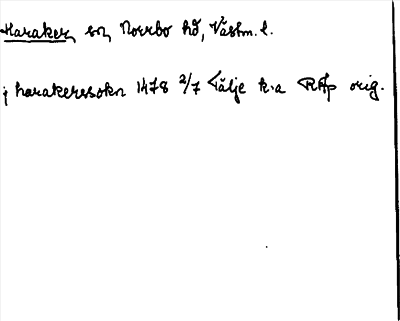 Haraker, sn, Norrbo hd, Västm. l.
j harakerssokn 1478 2/7 Tälje k:a RAp orig.